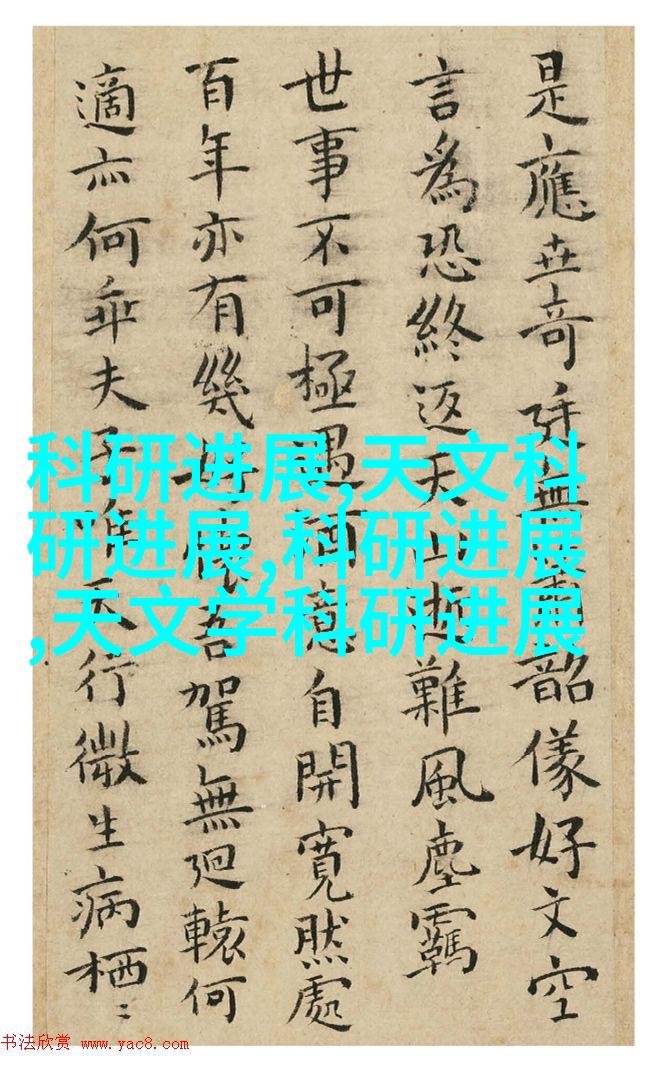 是應世奇韶儀好文空
言爲恐終返天山逝難風塵羈
世事不可極遇意自開寬然處
百年亦有幾懷吾駕無迴轅何
適亦何乖夫子唯天行微生病栖〻
科研进展,天文科
研进展,科研进展
,天文学科研进展
书法欣赏 www.yac8.com